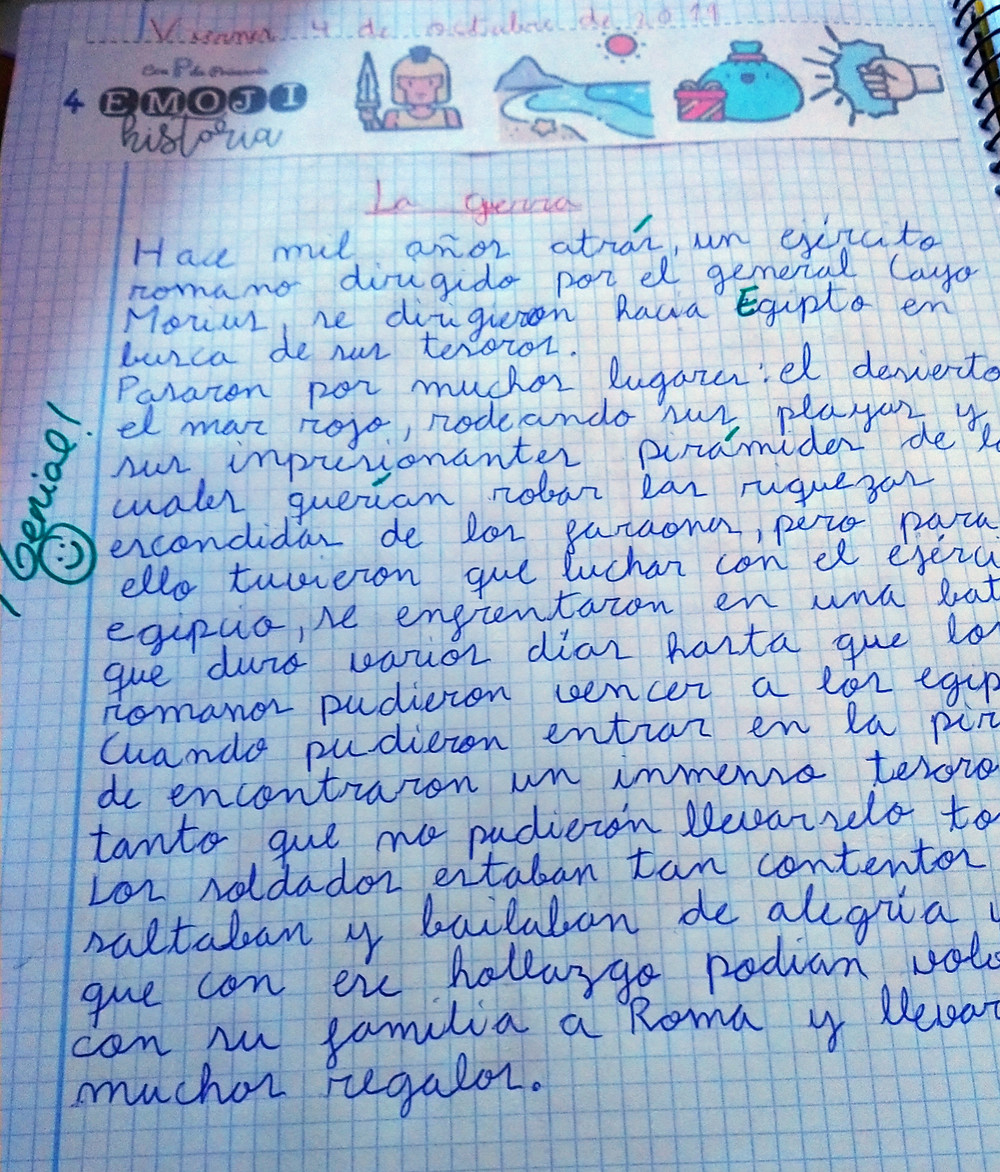 Viernes 4 de octubre de 2019
Con P de Primaria
4 EMOJI
historia
La guerra
Hace mil años atrás, un ejército
romano dirigido por el general Cayo
Morius, se dirigieron hacia Egipto en
busca de sus tesoros.
Pasaron por muchos lugares: el desierto
el mar rojo, rodeando sus playas y
sus inpresionantes pirámides de l
cuales querían robar las riquezas
escondidas de los faraones, pero para
ello tuvieron que luchar con el ejérci
egipcio, se enfrentaron en una bat
que duro varios días hasta que los
romanos pudieron vencer a los egip
Cuando pudieron entrar en la pir
de encontraron un inmenso tesoro
tanto que no pudierón llevarselo to
Los soldados estaban tan contentos
saltaban y bailaban de alegría
que con ese hallazgo podian volv
con su familia a Roma y llevar
muchos regalos.
¡Genial!